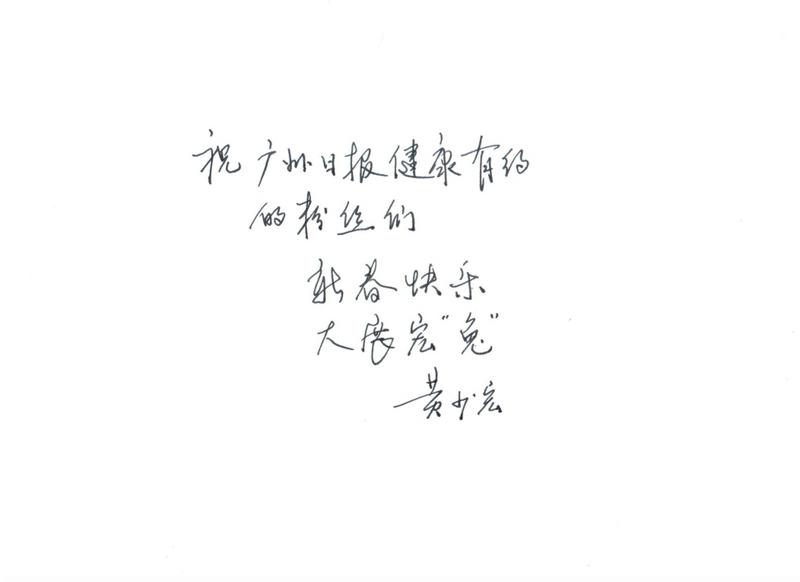 祝广州日报健康有约
的粉丝们
新春快乐
大展宏“兔”
黄少宏